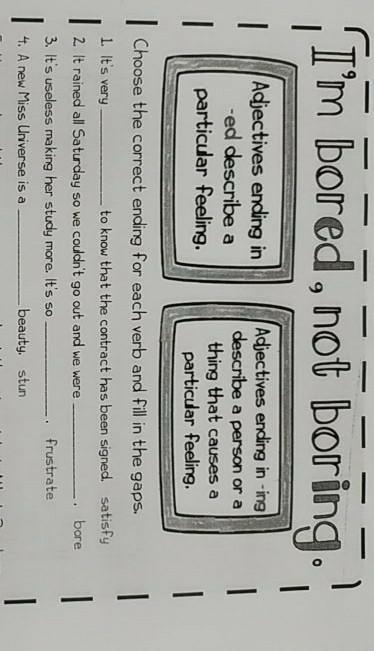 I'm bored, not boring.
Adjectives ending in
-ed describe a
particular feeling.
Adjectives ending in -ing
describe a person or a
thing that causes a
particular feeling.
Choose the correct ending for each verb and fill in the gaps.
1. It's very __________ to know that the contract has been signed. satisfy
2. It rained all Saturday so we couldn't go out and we were __________. bore
3. It's useless making her study more. It's so __________. frustrate
4. A new Miss Universe is a __________ beauty. stun